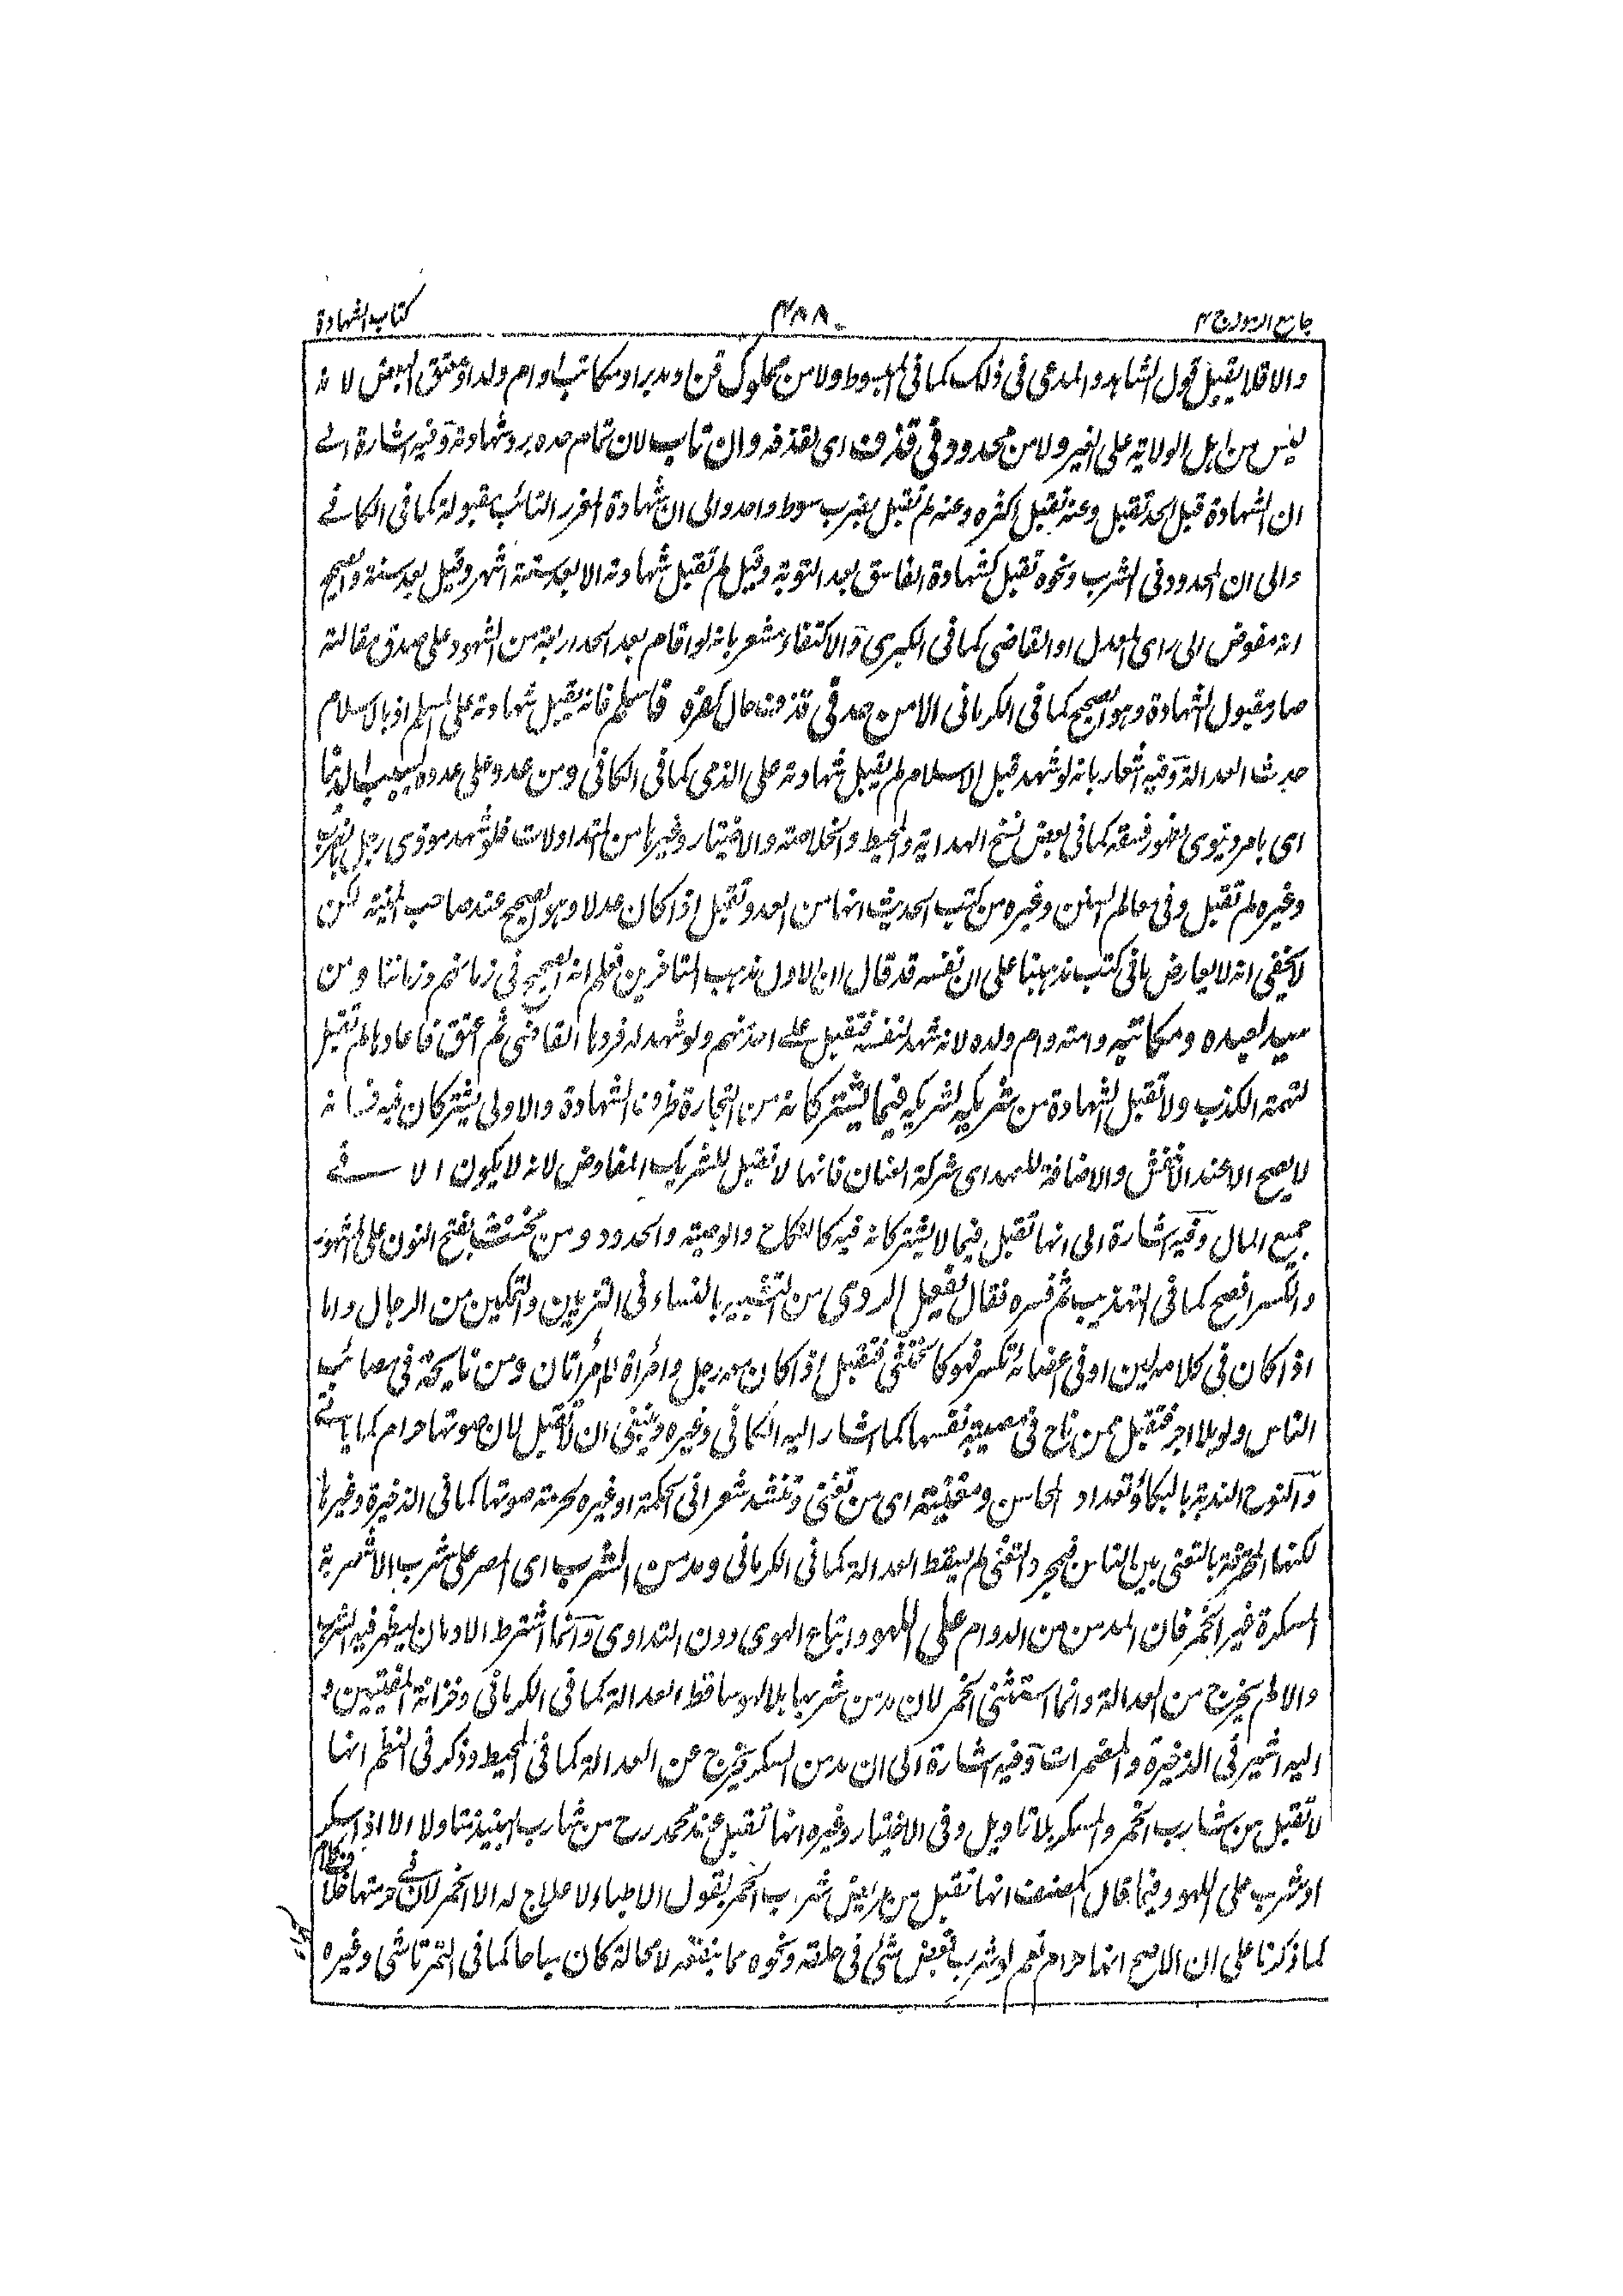 جامع الرموز ج ٢
٤٨٨
كتاب الشهادة
والا فلا يقبل قول الشاهد والمدعى فى ذلك كما فى المبسوط ولا من مملوك قن او مدبر او مكاتب او ام ولد او معتق البعض لانه
ليس من اهل الولاية على الغير ولا من محدود فى قذف اى لقذفه وان تاب لان تمام حده برد شهادته وفيه اشارة الى
ان الشهادة قبل الحد تقبل وعنه تقبل اكثره وعنه لم تقبل بضرب سوط واحد والى ان شهادة المعزر التائب مقبولة كما فى الكافى
والى ان المحدود فى الشرب ونحوه تقبل كشهادة الفاسق بعد التوبة وقيل لم تقبل شهادته الا بعد ستة اشهر وقيل بعد سنة والصحيح
انه مفوض الى راى المعدل او القاضى كما فى الكبرى والاكتفاء مشعر بانه لو اقام بعد الحد اربعة من الشهود على صدق مقالته
صار مقبول الشهادة وهو الصحيح كما فى الكرمانى الا من حد فى قذف حال كفره فاسلم فانه يقبل شهادته على المسلم اذ بالاسلام
حدث العدالة وفيه اشعار بانه لو شهد قبل الاسلام لم يقبل شهادته على الذمى كما فى الكافى ومن عدو على عدوه بسبب الدنيا
اى بامر دنيوى لظهور فسقه كما فى بعض نسخ الهداية والمحيط والخلاصة والاختيار وغيرها من المتداولات فلو شهد مؤذى رجل
وغيره لم تقبل وفى معالم السنن وغيره من كتب الحديث انها من العدو تقبل اذا كان عدلا وهو الصحيح عند صاحب المنية لكن
لا يخفى انه لا يعارض ما فى كتب مذهبنا على ان نفسه قد قال ان الاول مذهب المتاخرين فعلم انه الصحيح فى زمانهم وزماننا ومن
سيد لعبده ومكاتبه وامته وام ولده لانه شهد لنفسه فتقبل على احدهم ولو شهد له فردها القاضى ثم اعتق فاعادها لم تقبل
لتهمة الكذب ولا تقبل الشهادة من شريك لشريكه فيما يشتركانه من التجارة ظرف الشهادة والاولى يشتركان فيه فانه
لا يصح الا عند الاخفش والاضافة للعهد اى شركة العنان فانها لا تقبل للشريك المفاوض لانه لا يكون الا فى
جميع المال وفيه اشارة الى انها تقبل فيما لا يشتركانه فيه كالنكاح والوصية والحدود ومن مخنث بفتح النون على المشهور
والكسر افصح كما فى التهذيب ثم فسره فقال يفعل الردى من التشبيه بالنساء فى التزيين والتمكين من الرجال واما
اذا كان فى كلامه لين او فى اعضائه تكسر فهو كالخنثى فتقبل اذا كان معه رجل وامرأة او امرأتان ومن نايحة فى مصائب
الناس ولو بلا اجر فتقبل ممن ناح فى مصيبة نفسها كما اشار اليه الكافى وغيره وينبغى ان لا تقبل لان صوتها حرام كما ياتى
والنوح الندبة بالبكاء وتعداد المحاسن ومغنية اى من تغنى وتنشد شعرا فى الحكمة او غيره لحرمة صوتها كما فى الذخيرة وغيرها
لكنها المحترفة بالتغنى بين الناس فبمجرد التغنى لم يسقط العدالة كما فى الكرمانى ومدمن الشرب اى المصر على شرب الاشربة
المسكرة غير الخمر فان المدمن من الدوام على اللهو واتباع الهوى دون التداوى وانما اشترط الادمان ليظهر فيه الشرب
والا لم يخرج من العدالة وانما استثنى الخمر لان مدمن شربها بلا لهو ساقط العدالة كما فى الكرمانى وخزانة المفتيين و
اليه اشير فى الذخيرة والمضمرات وفيه اشارة الى ان مدمن السكر يخرج عن العدالة كما فى المحيط وذكر فى النظم انها
لا تقبل من شارب الخمر والمسكر بلا تاويل وفى الاختيار وغيره انها تقبل عند محمد رح من شارب النبيذ متاولا الا اذا سكر
او شرب على اللهو وفيما قال المصنف انها تقبل من مريض شرب الخمر بقول الاطباء لا علاج له الا الخمر لان فى حرمتها خلافا
كما ذكرنا على ان الاصح انها حرام نعم لو شرب لغصص شئ فى حلقه ونحوه مما ينفعه لا محالة كان مباحا كما فى التمرتاشى وغيره